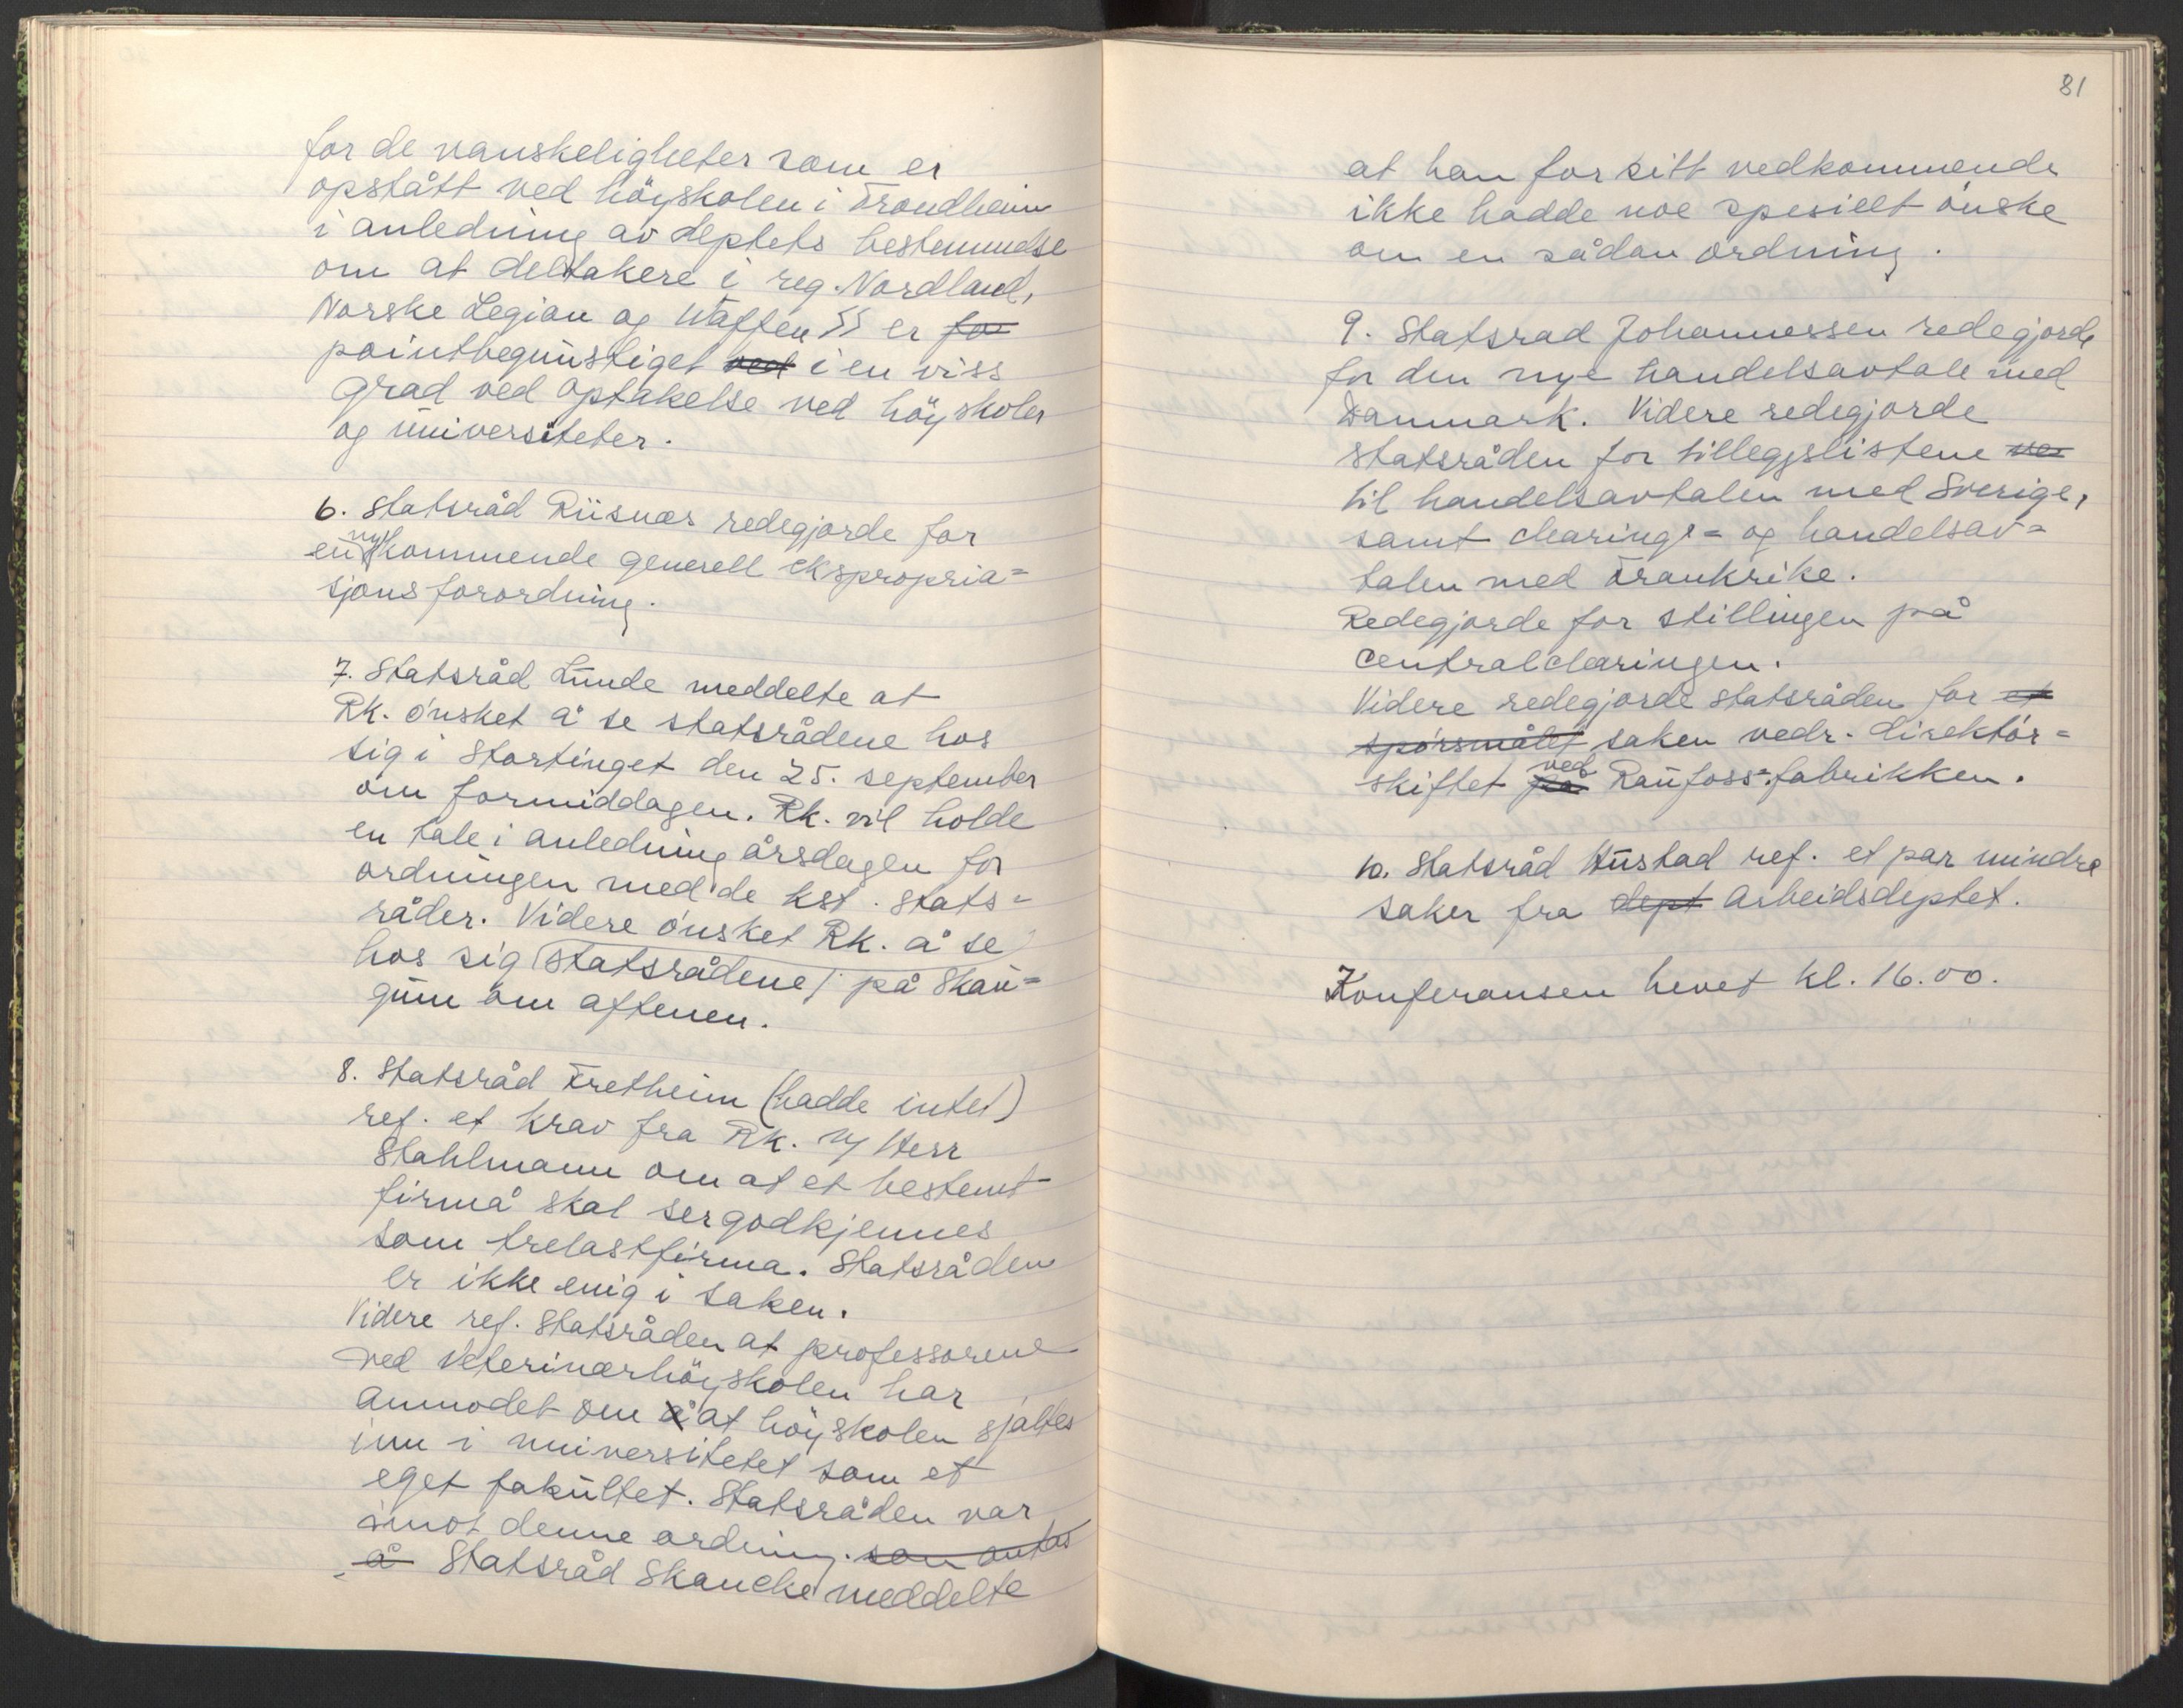 for de vanskeligheter som er
opstått ved höyskolen i Trondheim
i anledning av deptets bestemmelse
om at deltakere i reg. Nordland,
Norske Legion og Waffen SS er for
pointbegunstiget ved i en viss
grad ved optakelse ved höyskoler
og universiteter.
6. Statsråd Riisnæs redegjorde for
en ny kommende generell ekspropria=
sjonsforordning.
7. Statsråd Lunde meddelte at
Rk. önsket å se statsrådene hos
sig i Stortinget den 25. september
om formiddagen. Rk. vil holde
en tale i anledning årsdagen for
ordningen med de kst. stats=
råder. Videre önsket Rk. å se
hos sig statsrådene på Skau=
gum om aftenen.
8. Statsråd Fretheim (hadde intet)
ref. et krav fra Rk. v/ Herr
Stahlmann om at et bestemt
firma skal sergodkjennes
som trelastfirma. Statsråden
er ikke enig i saken.
Videre ref. Statsråden at professorene
ved Veterinærhöyskolen har
anmodet om å at höyskolen sjaltes
inn i universitetet som et
eget fakultet. Statsråden var
imot denne ordning. som antas
å Statsråd Skancke meddelte
81
at han for sitt vedkommende
ikke hadde noe spesielt önske
om en sådan ordning.
9. Statsrad Johannessen redegjorde
for den nye handelsavtale med
Danmark. Videre redegjorde
statsråden for tilleggslistene ve
til handelsavtalen med Sverige,
samt clearings= og handelsav=
talen med Frankrike.
Redegjorde for stillingen på
Centralclearingen.
Videre redegjorde statsråden for et
spörsmålet saken vedr. direktör=
skiftet på ved Raufoss=fabrikken.
10. Statsråd Hustad ref. et par mindre
saker fra dept Arbeidsdeptet.
Konferansen hevet kl. 16.00.